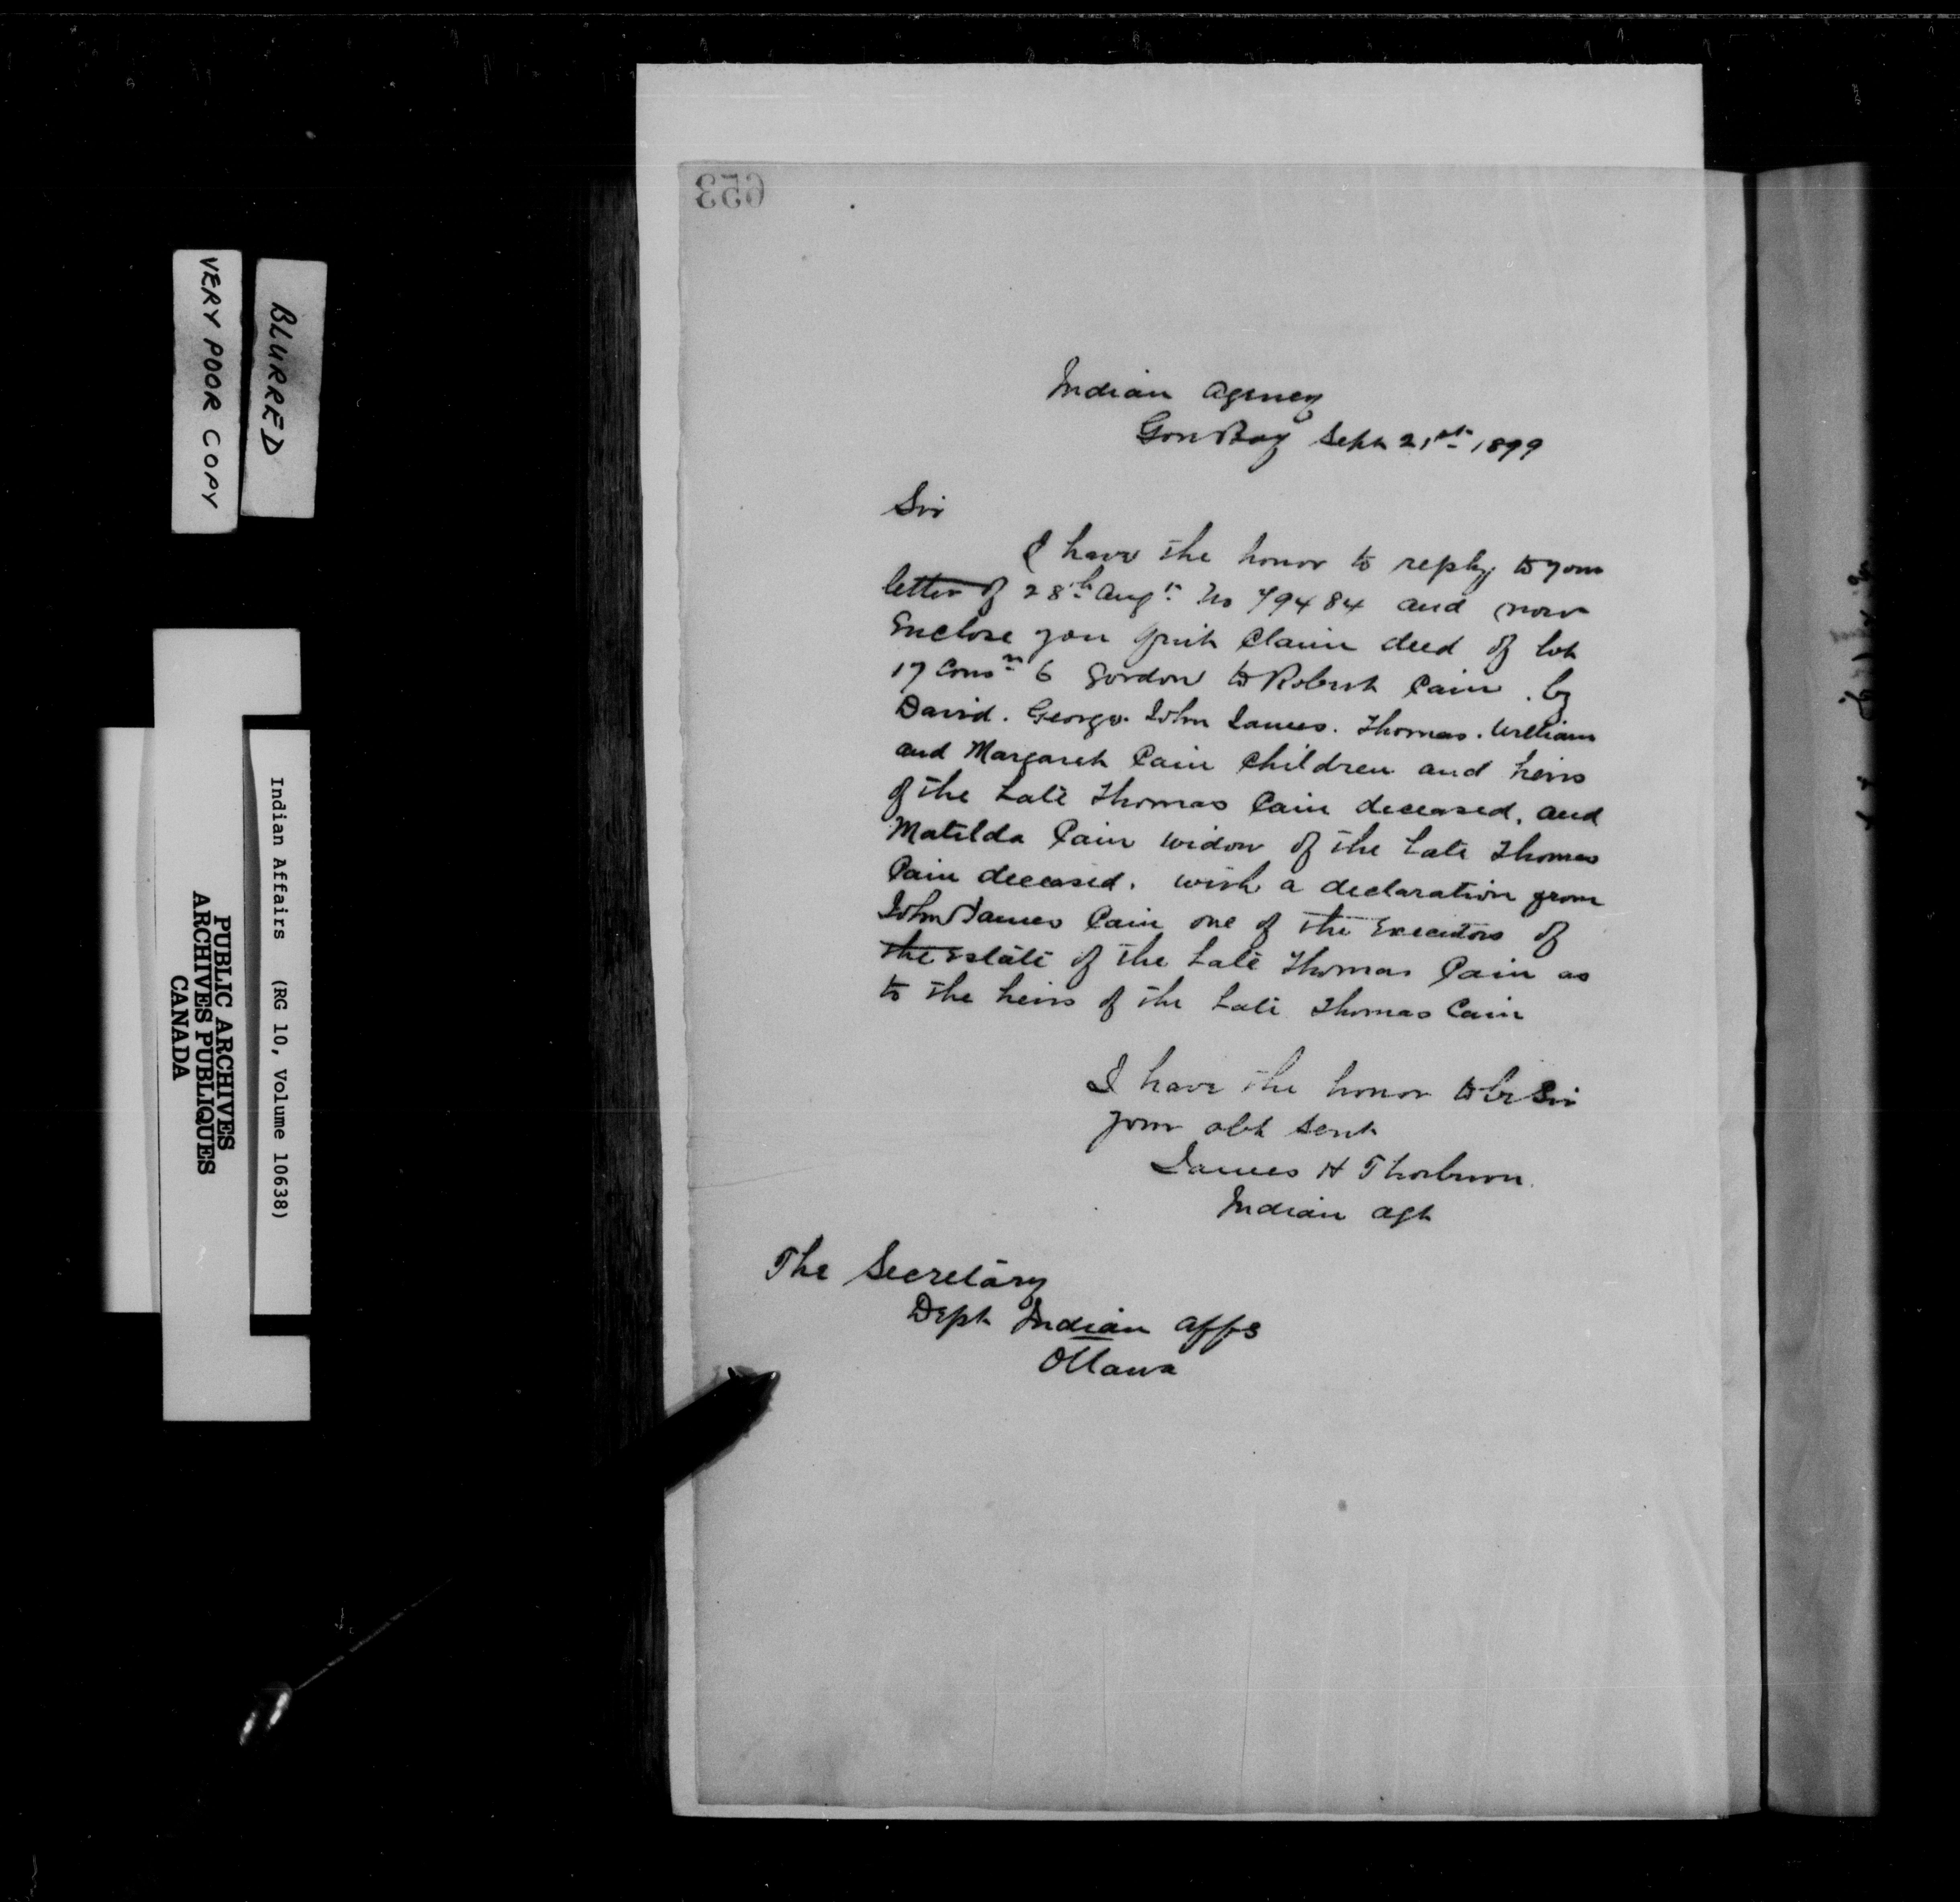 BLURRED
VERY POOR COPY
Indian Affairs (RG 10, Volume 10638)
PUBLIC ARCHIVES
ARCHIVES PUBLIQUES
CANADA
653
Indian Agency
Gore Bay Sept 21st 1899
Sir
I have the honor to reply to your
letter of 28th Augt No 79484 and now
Enclose you Quit Claim deed of Lot
17 Conon 6 Gordon to Robert Cain. by
David. George. John James. Thomas. William
and Margaret Cain Children and heirs
of the Late Thomas Cain deceased, and
Matilda Cain widow of the Late Thomas
Cain deceased. with a declaration from
John James Cain one of the Executors of
the Estate of the Late Thomas Cain as
to the heirs of the Late Thomas Cain
I have the honor to be Sir
your obt Servt
James H Thorburn.
Indian Agt
The Secretary
Dept Indian Affs
Ottawa